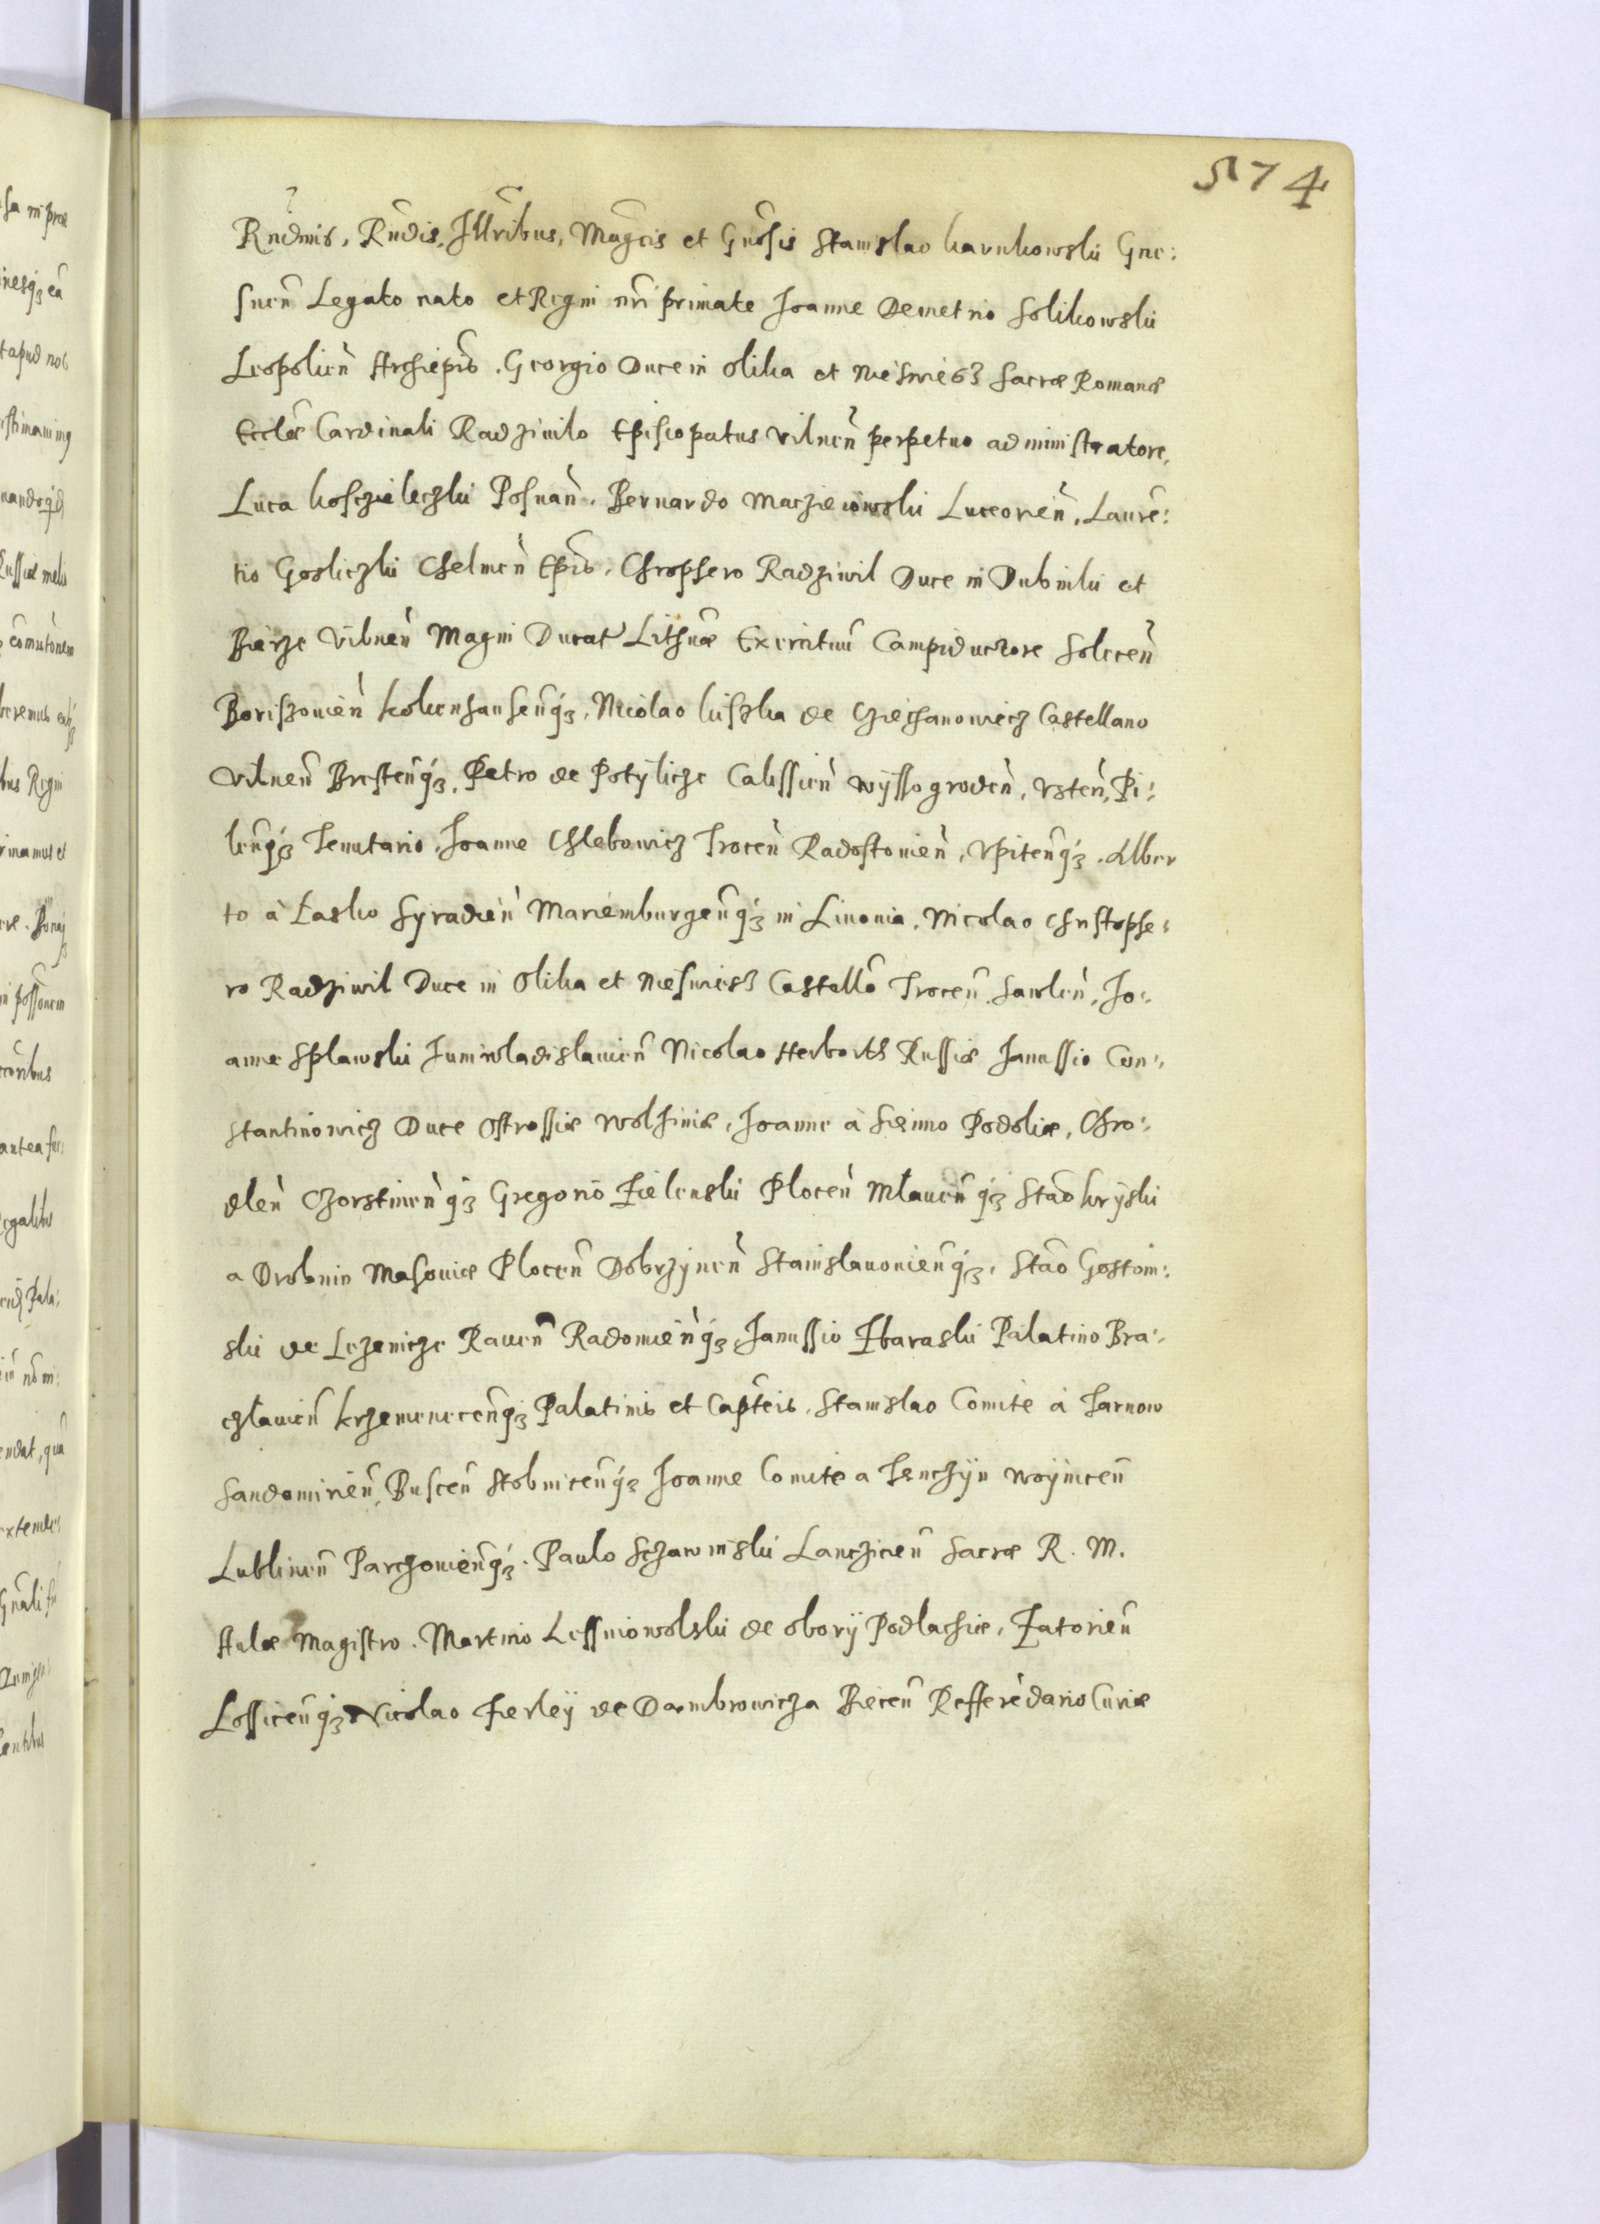 574
Rndmis, Rndis, Illribus, Magcis et Gnosis Stanislao Karnkowski Gne:
snen Legato nato et Regni nri primate Joanne Demetrio Solikowski
Leopolien Archiepis. Georgio Duce in Olika et Nieswiesz Sacræ Romanæ
Ecclæ Cardinali Radziwilo Episcopatus Vilnen perpetuo administratore,
Luca Kosczieleczki Posnan. Bernardo Macziewowski Luceorien, Lauren:
tio Gosliczki Chelmen Epis, Chrophero Radziwil Duce in Dubinki et
Bierze Vilnen Magni Ducat Lithuæ Exercituu Campiductore Solecen
Boriszovien Kokenhausenq3, Nicolao Kiszka de Cziechanowiecz Castellano
Vilnen Brestenq3, Petro de Potÿlicze Calissien Wÿssogroden, Usten, Pi:
lenq3 Tenutario. Joanne Chlebowicz Trocen Radostovien, Upitenq3. Alber
to à Lasko Syradien Mariemburgenq3 in Livonia. Nicolao Christophe:
ro Radziwil Duce in Olika et Nieswiesz Castello Trocen Sawlen, Jo:
anne Splawski Juniwladislavien Nicolao Herborth Russiæ Janussio Con:
stantinowicz Duce Ostrossiæ Wolhiniæ, Joanne à Sienno Podoliæ, Chro:
dlen Czorstinenq3 Gregorio Zielenski Plocen Mlavenq3 Stao Krÿski
a Drobnin Masoviæ Plocen Dobrzÿnen Stanislavovienq3, Stao Gostom:
ski de Lezenicze Raven Radomienq3, Janussio Zbaraski Palatino Bra:
czlavien Krzemenecenq3 Palatinis et Capteis. Stanislao Comite à Tarnow
Sandomirien, Buscen Stobnicenq3 Joanne Comite a Tenczÿn Woÿnicen
Lublinen Parczovienq3. Paulo Sczawinski Lanczicien Sacræ R. M.
Aulæ Magistro. Martino Lessniowolski de oborÿ Podlachiæ, Zatorien
Lossicenq3 Nicolao Fierleÿ de Dambrowicza Biecen Refferedario Curiæ